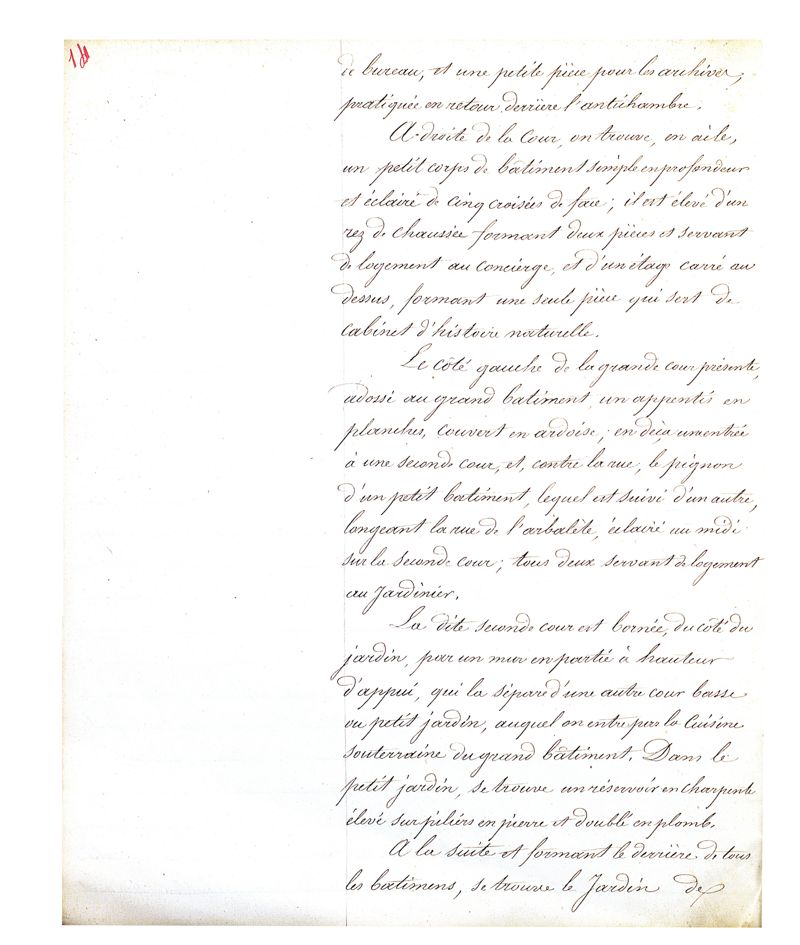 de bureau, et une petite pièce pour les archives,
pratiquée en retour derrière l'antichambre.
A droite de la Cour, on trouve, en aile,
un petit corps de bâtiment simple en profondeur
et éclairé de cinq croisées de face; il est élevé d'un
rez de chaussée formant deux pièces et servant
de logement au concierge, et d'un étage carré au
dessus, formant une seule pièce qui sert de
cabinet d'histoire naturelle.
Le côté gauche de la grande cour présente,
adossé au grand batiment, un appentis en
planches, couvert en ardoise; en deça une entrée
à une seconde cour, et, contre la rue, le pignon
d'un petit bâtiment, lequel est suivi d'un autre,
longeant la rue de l'arbalète, éclairé au midi
sur la seconde cour; tous deux servant de logement
au Jardinier.
La dite seconde cour est bornée, du côté du
jardin, par un mur en partie à hauteur
d'appui, qui la sépare d'une autre cour basse
ou petit jardin, auquel on entre par la Cuisine
souterraine du grand bâtiment. Dans le
petit jardin, se trouve un réservoir en charpente
élevé sur piliers en pierre et doublé en plomb.
A la suite et formant le derrière de tous
les batimens, se trouve le Jardin de